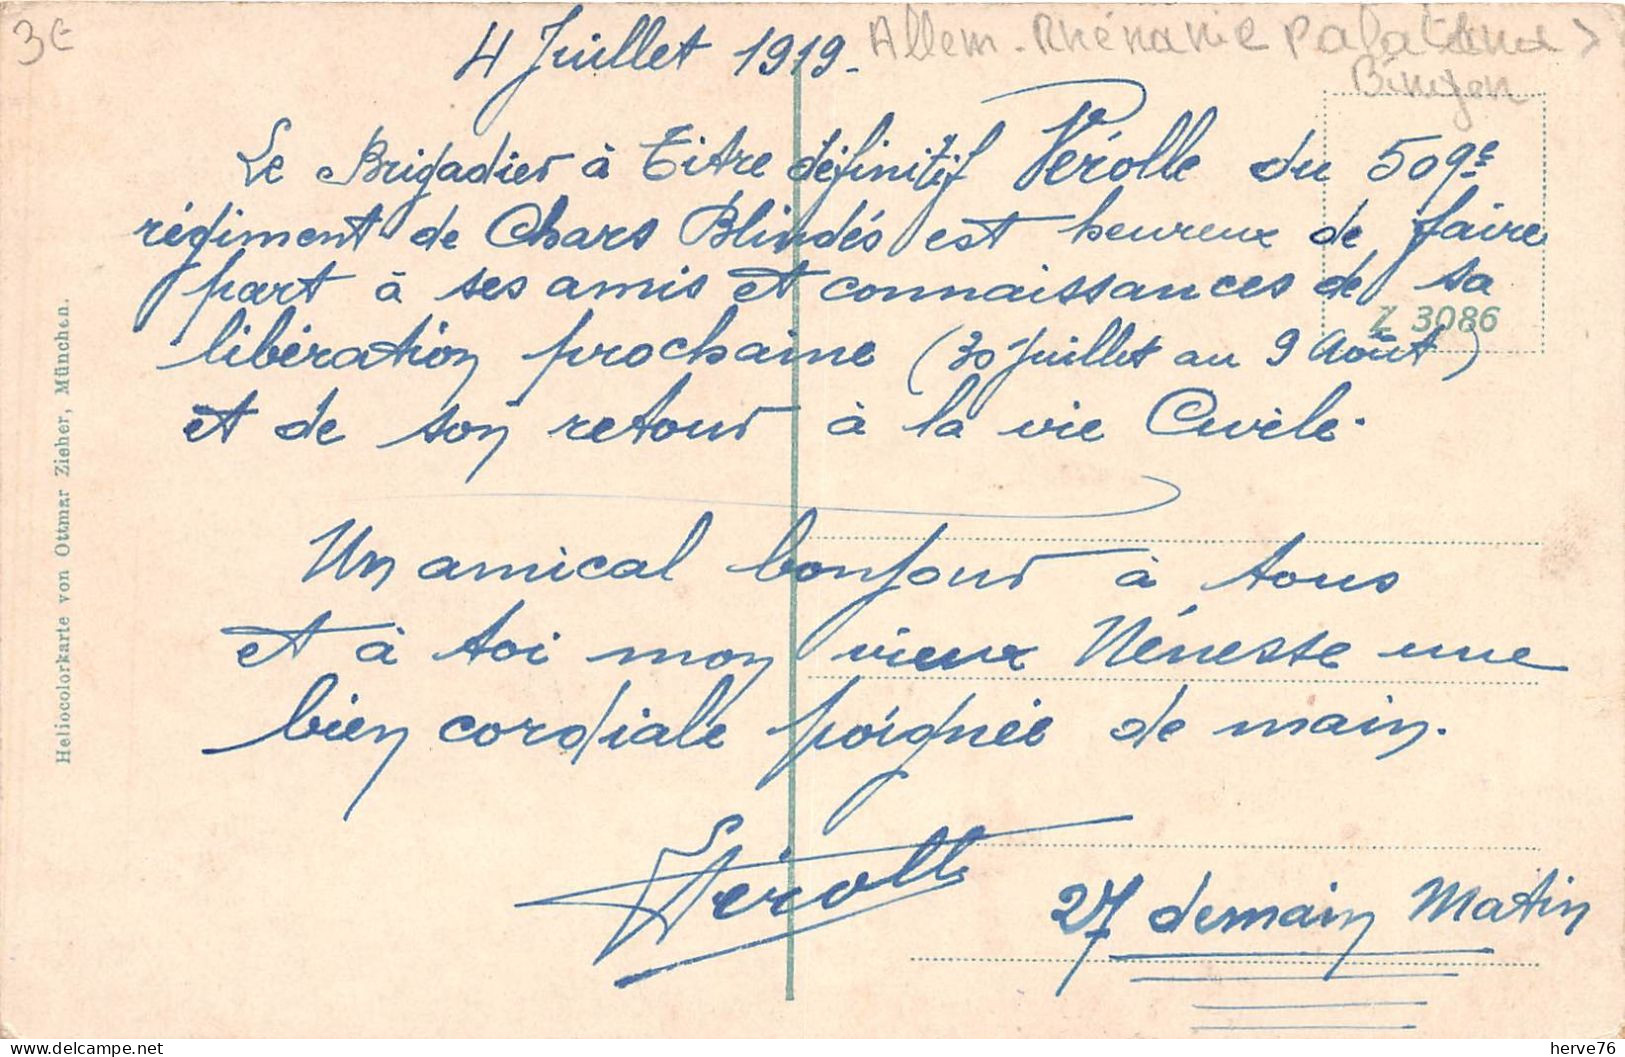 3€
Allem - Rhénanie Palatinat >
Bingen
4 Juillet 1919.
Le Brigadier à titre définitif Pérolle du 509e
régiment de Chars Blindés est heureux de faire
part à ses amis et connaissances de sa
libération prochaine (30 Juillet au 9 Août)
et de son retour à la vie Civile.
Z 3086
Un amical bonjour à tous
et à toi mon vieux Nénesse une
bien cordiale poignée de main.
Pérolle
27 demain Matin
Heliocolorkarte von Ottmar Zieher, München.
delcampe.net
herve76